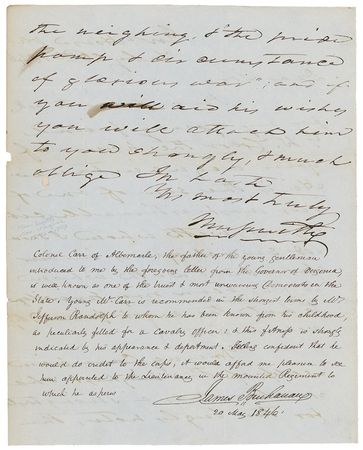 the neighing & the
pomp & circumstance
of glorious war"; and if
you will aid his wishes
you will attach him
to you strongly, & much
oblige In haste
Yrs most truly
Wm Smith
Colonel Carr of Albemarle, the father of the young gentleman
introduced to me by the foregoing letter from the Governor of Virginia,
is well known as one of the truest & most unwavering Democrats in the
State. Young Mr Carr is recommended in the strongest terms by Mr
Jefferson Randolph to whom he has been known from his childhood,
as peculiarly fitted for a Cavalry officer; & this fitness is strongly
indicated by his appearance & deportment. Feeling confident that he
would do credit to the corps, it would afford me pleasure to see
him appointed to the Lieutenancy in the mounted Regiment to
which he aspires
James Buchanan
20 May 1846.